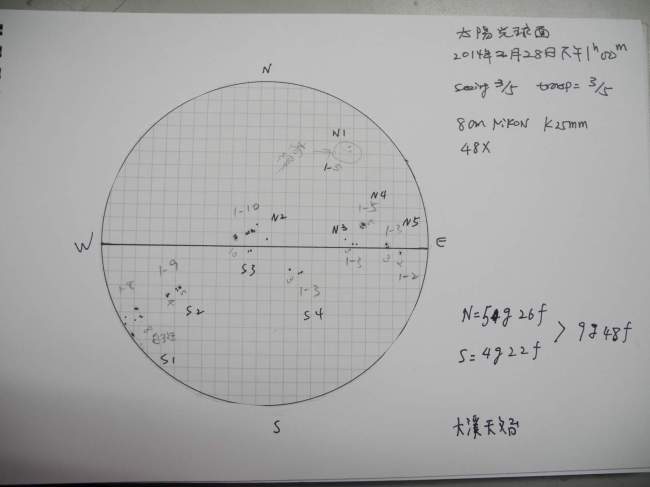 太陽光球面
2014年2月28日下午1h00m
seeing 3/5 transp= 3/5
8cm Nikon K25mm
48X
N
N1
1-5
N4
1-10
1-5
N2
N3
N5
1-3
W
E
1-3
1-2
S3
1-9
1-3
1-8
S2
S4
S1
S
N=5g26f
S=4g22f
> 9g48f
大溪天文台